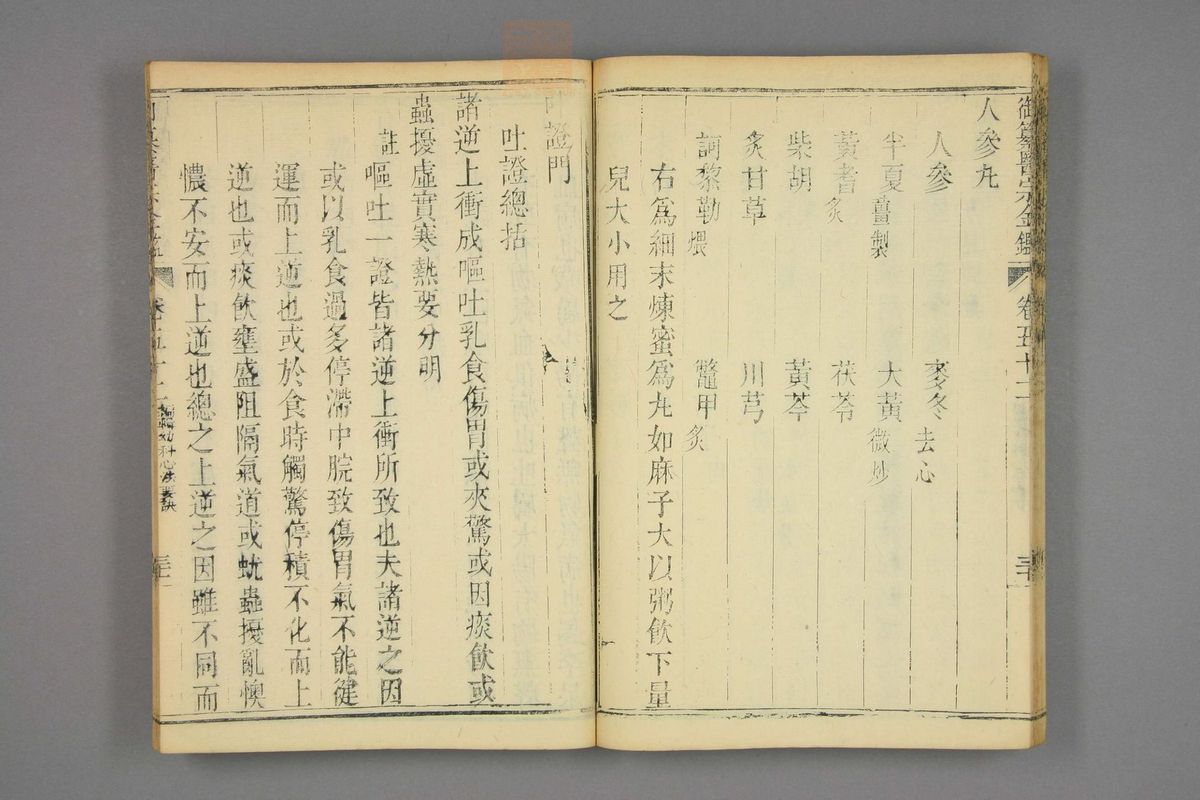 御纂醫宗金鑑 卷五十二
人參丸
人參 麥冬去心
半夏薑製 大黃微炒
黃耆炙 茯苓
柴胡 黃芩
炙甘草 川芎
訶黎勒煨 鼈甲炙
右爲細末煉蜜爲丸如麻子大以粥飲下量
兒大小用之
吐證門
吐證總括
諸逆上衝成嘔吐乳食傷胃或夾驚或因痰飲或
蟲擾虛實寒熱要分明
註嘔吐一證皆諸逆上衝所致也夫諸逆之因
或以乳食過多停滯中脘致傷胃氣不能健
運而上逆也或於食時觸驚停積不化而上
逆也或痰飲壅盛阻隔氣道或蚘蟲擾亂懊
憹不安而上逆也總之上逆之因雖不同而
卷五十二 編輯幼科心法要訣